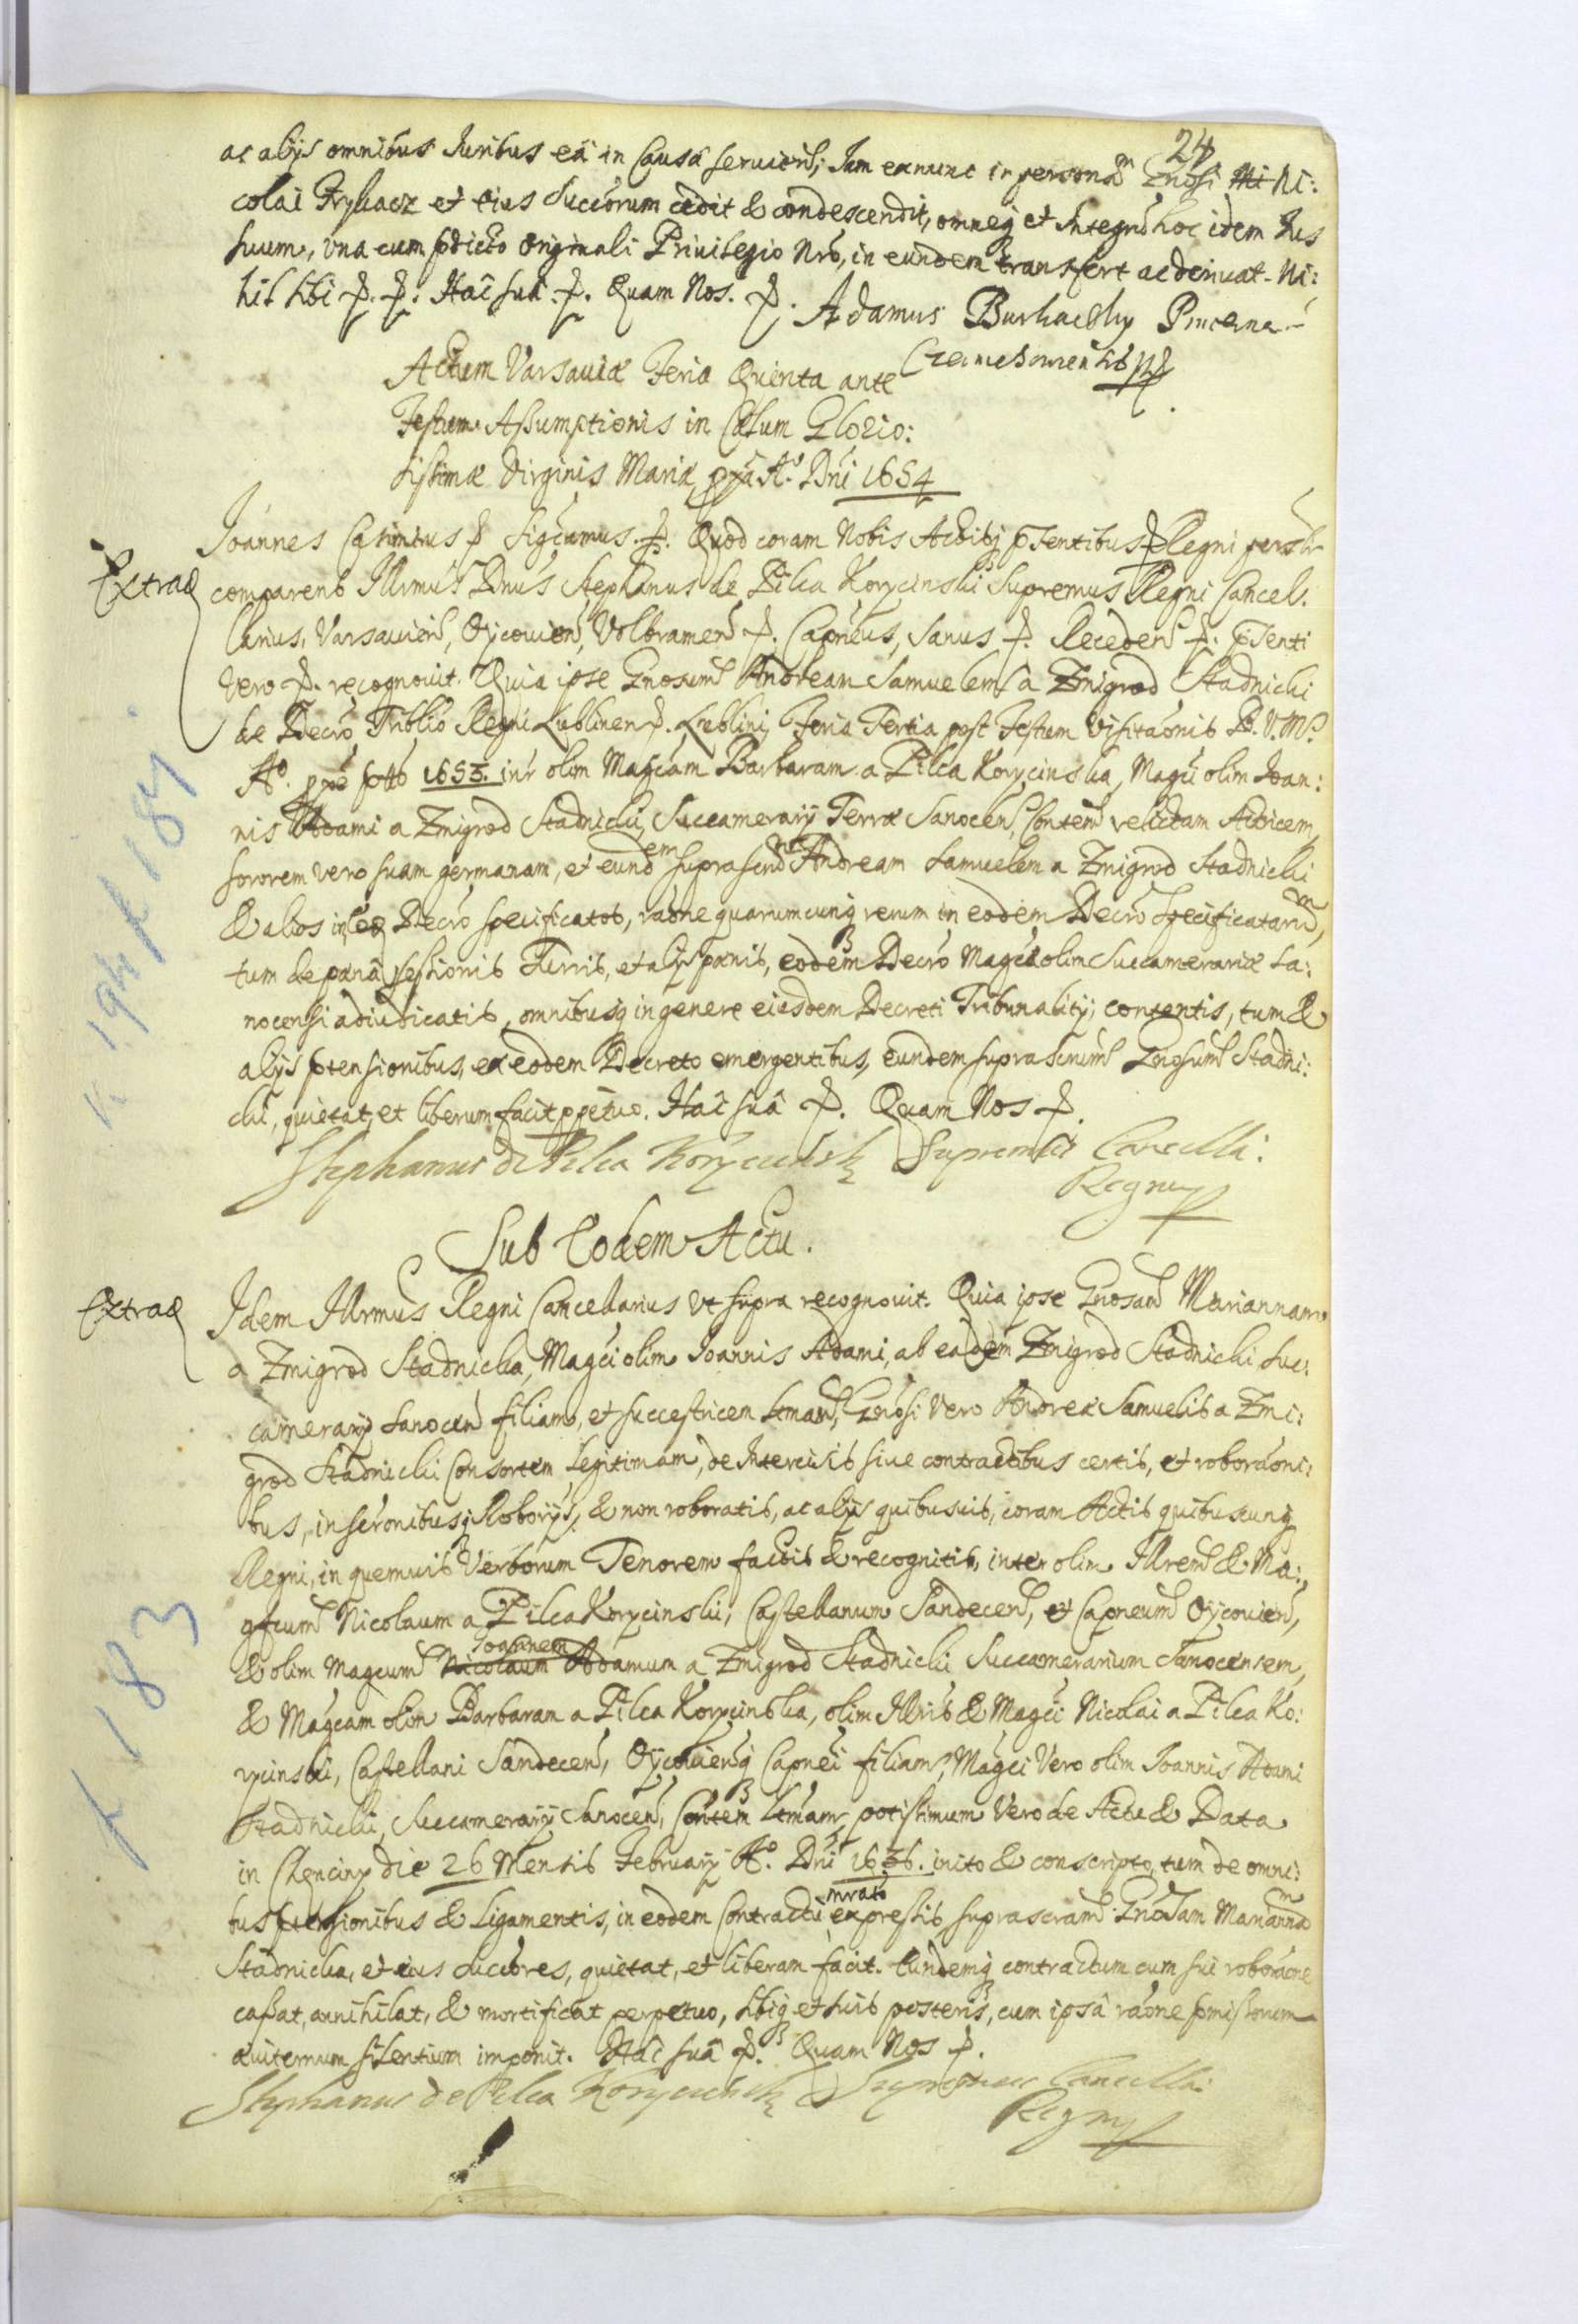 24
ac alijs omnibus Iuribus eâ in Causâ seruien͠, Iam exnunc in personam Gnosi Mi Ni:
colai Fryhacz et eius Succorum cedit & condescendit, omneq et Integrũ hoc idem Ius
suum, vna cum pdicto Originali Priuilegio Nro, in eundem transfert ac deriuat. Ni:
hil sibi p. p. Hac suâ p. Quam Nos. p.
Adamus Burhacky Pincerna
Actum Varsauiæ Feria Quinta ante
Festum Assumptionis in Cælum Glorio:
sissimæ Virginis Mariæ, pxa Aº. Dni 1654
Extrad
Joannes Casimirus p Significamus. p. Quod coram Nobis Actisq pṡentibus p Regni personlr
comparens Illrmus Dnus Stephanus de Pilca Korycinski Supremus Regni Cancel:
larius, Varsauien, Oycouien, Volbramen p. Capneus, Sanus p. Receden p. pṡenti
Vero p. recognouit. Quia ipse Gnosum Andream Samuelem a Zmigrod Stadnicki
de Decro Triblio Regni Lublinen p. Lublini Feria Tertia post Festum Visitaonis B. V. M.
Aº. pxe ptto 1653. inr olim Magcam Barbaram a Pilca Korycinska, Magci olim Ioan:
nis Adami a Zmigrod Stadnicki Succamerarij Terræ Sanocen, Contem relictam Actricem,
sororem vero suam germanam, et eundem suprascrm Andream Samuelem a Zmigrod Stadnicki
& alios in eo Decro specificatos, raone quarumcunq rerum in eodem Decro Specificatarum,
tum de pœnâ sessionis Turris, et alijs pœnis, eodem Decro Magcæ olim Succamerariæ Sa:
nocensi adiudicatis, omnibusq in genere eiusdem Decreti Tribunalitij contentis, tum &
alijs ptensionibus, ex eodem Decreto emergentibus, eundem suprascrium Gnosum Stadni:
cki, quietat, et liberum facit ppetuo. Hac suâ p. Quam Nos p.
Stephanus de Pilca Korycinsky Supremus Cancella:
Regni
Sub Eodem Actu.
Extrad
Idem Illrmus Regni Cancellarius Vt supra recognouit. Quia ipse Gnosam Mariannam
a Zmigrod Stadnicka, Magci olim Ioannis Adami, ab eadem Zmigrod Stadnicki Suc:
camerarij Sanocen filiam, et successricem ltmam, Gnosi Vero Andreæ Samuelis a Zmi:
grod Stadnicki Consortem Legitimam, de Intercisis siue contractibus certis, et roboraoni:
bus, inscronibusq Roborijs, & non roboratis, ac alijs quibusuis, coram Actis quibuscunq
Regni, in quemuis Verborum Tenorem factis & recognitis, inter olim Illrem & Ma:
gfcum Nicolaum a Pilca Korycinski, Castellanum Sandecen, et Capneum Oycouien,
& olim Magcum Nicolaum Joannem Adamum a Zmigrod Stadnicki Succamerarium Sanocensem,
& Magcam olim Barbaram a Pilca Korycinska, olim Illris & Magci Nicolai a Pilca Ko:
rycinski, Castellani Sandecen, Oycouienq Capnei filiam, Magci Vero olim Ioannis Adami
Stadnicki, Succamerarij Sanocen, Contem ltmam, potissimum Vero de Actu & Data
in Chenciny die 26 Mensis February Aº. Dni 1636. inito & conscripto, tum de omni:
bus ptensionibus & Ligamentis, in eodem Contractu mrato expressis suprascram Gnosam Mariannam
Stadnicka, et eius Succores, quietat, et liberam facit. Eundemq contractum cum sui roboraone
cassat, annihilat, & mortificat perpetuo, sibiq et suis posteris, cum ipsâ raone pmissorum
æuiternum silentium imponit. Hac suâ p. Quam Nos p.
Stephanus de Pilca Korycinsky Supremus Cancella:
Regni
K 194 f 189.
f 183